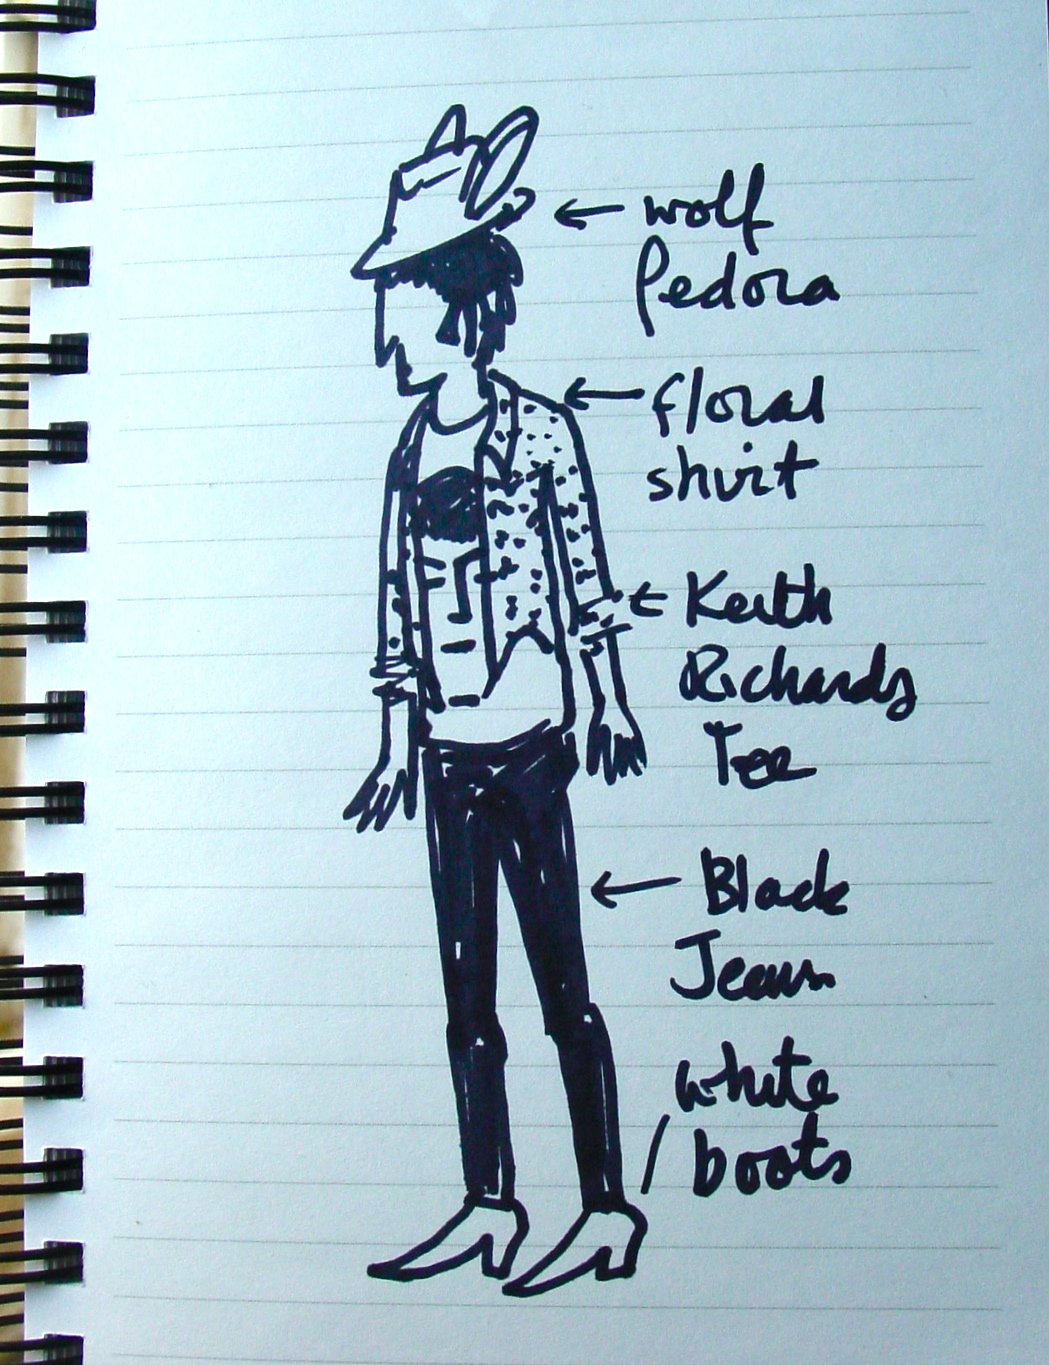 wolf
fedora
floral
shirt
Keith
Richards
Tee
Black
Jeans
white
boots